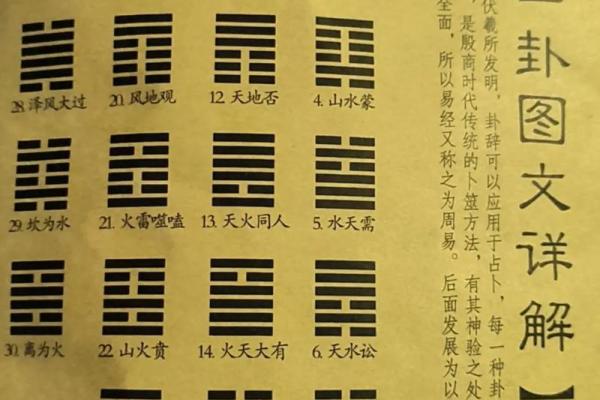 卦图文详解【
伏羲所发明，卦辞可以应用于占卜，每一种卦
，是殷商时代传统的卜筮方法，有其神验之处
全面，所以易经又称之为周易。后面发展为以
4. 山水蒙
5. 水天需
6. 天水讼
12. 天地否
13. 天火同人
14. 火天大有
20. 风地观
21. 火雷噬嗑
22. 山火贲
28. 泽风大过
29. 坎为水
30. 离为火